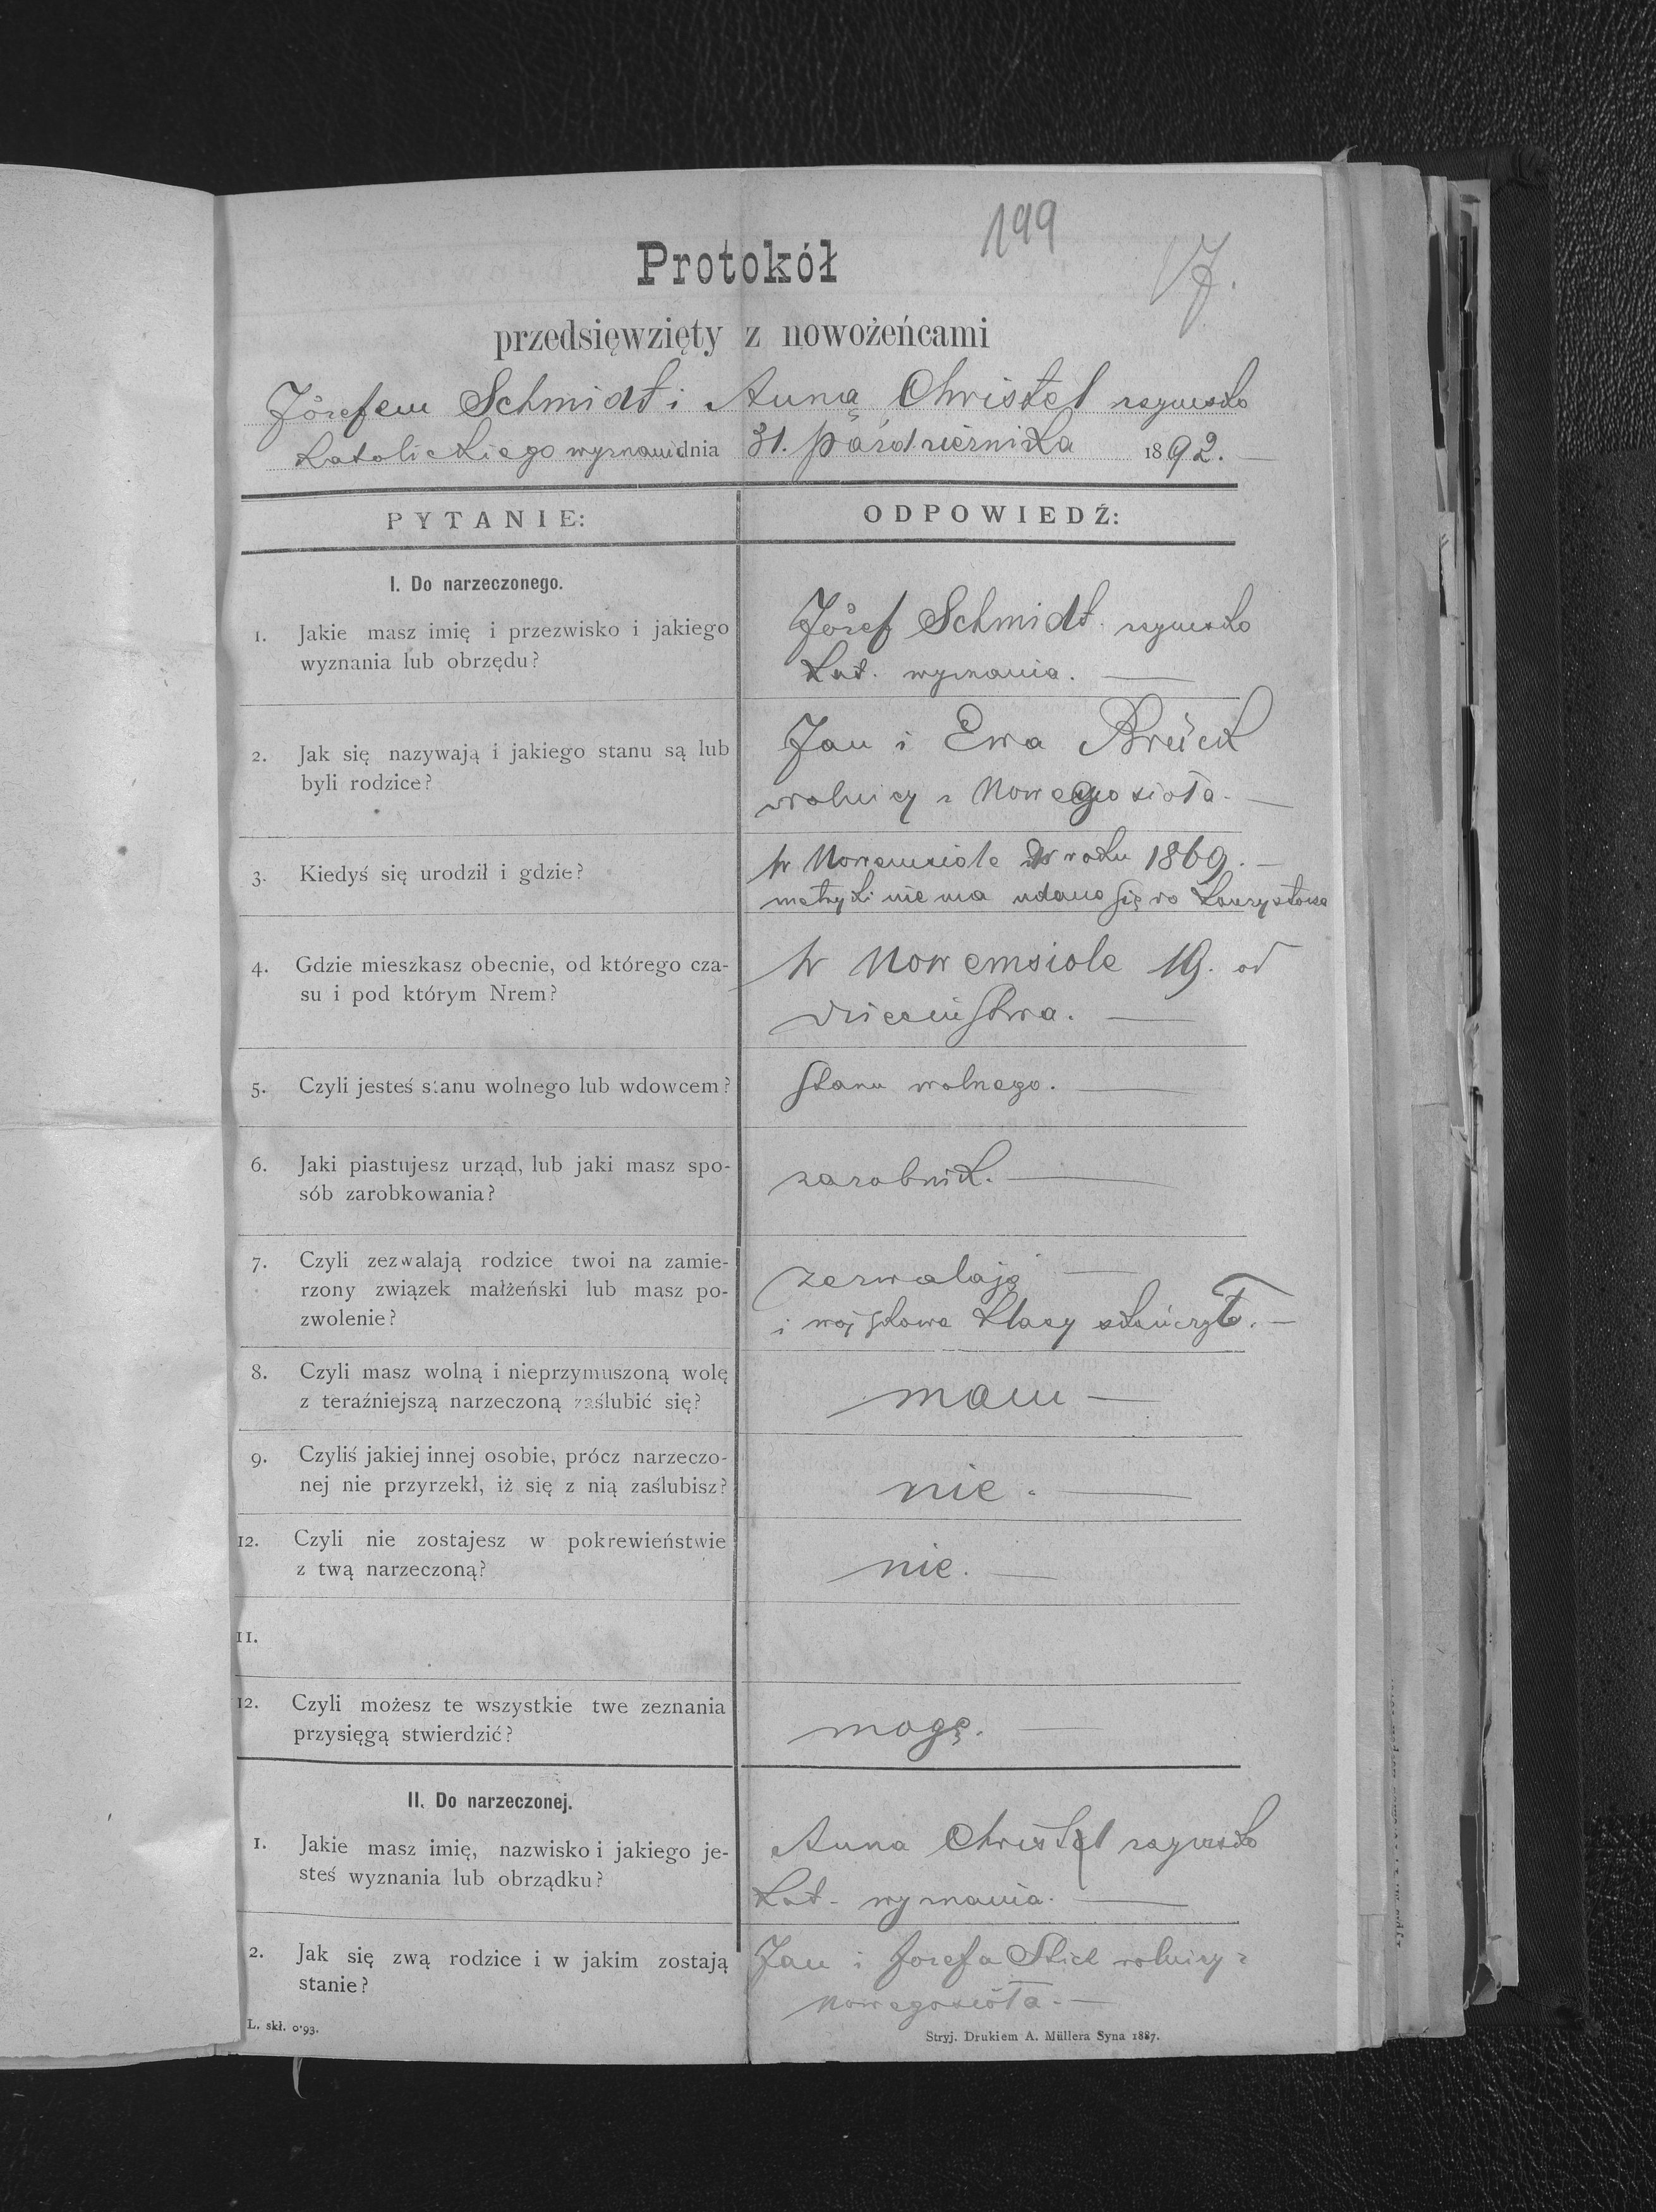 199
17.
Protokół
przedsięwzięty z nowożeńcami
Józefem Schmidt i Anną Christel rzymsko
katolickiego wyznania dnia 31. października 1892.
PYTANIE:
ODPOWIEDŹ:
I. Do narzeczonego.
1. Jakie masz imię i przezwisko i jakiego
wyznania lub obrzędu?
Józef Schmidt rzymsko
kat. wyznania.
2. Jak się nazywają i jakiego stanu są lub
byli rodzice?
Jan i Ewa Brück
rolnicy z Nowegosioła.
3. Kiedyś się urodził i gdzie?
w Nowemsiole w roku 1869.
metryki nie ma udano się do
4. Gdzie mieszkasz obecnie, od którego cza-
su i pod którym Nrem?
w Nowemsiole 19. od
dzieciństwa.
5. Czyli jesteś stanu wolnego lub wdowcem?
stanu wolnego.
6. Jaki piastujesz urząd, lub jaki masz spo-
sób zarobkowania?
zarobnik.
7. Czyli zezwalają rodzice twoi na zamie-
rzony związek małżeński lub masz po-
zwolenie?
zezwalają
i wojskowe klasy skończył.
8. Czyli masz wolną i nieprzymuszoną wolę
z teraźniejszą narzeczoną zaślubić się?
mam
9. Czyliś jakiej innej osobie, prócz narzeczo-
nej nie przyrzekł, iż się z nią zaślubisz?
nie.
12. Czyli nie zostajesz w pokrewieństwie
z twą narzeczoną?
nie.
11.
12. Czyli możesz te wszystkie twe zeznania
przysięgą stwierdzić?
mogę.
II. Do narzeczonej.
1. Jakie masz imię, nazwisko i jakiego je-
steś wyznania lub obrządku?
Anna Christel rzymsko
kat. wyznania.
2. Jak się zwą rodzice i w jakim zostają
stanie?
Jan i Józefa rolnicy z
Nowegosioła.
L. skł. 0'93.
Stryj. Drukiem A. Müllera Syna 1887.